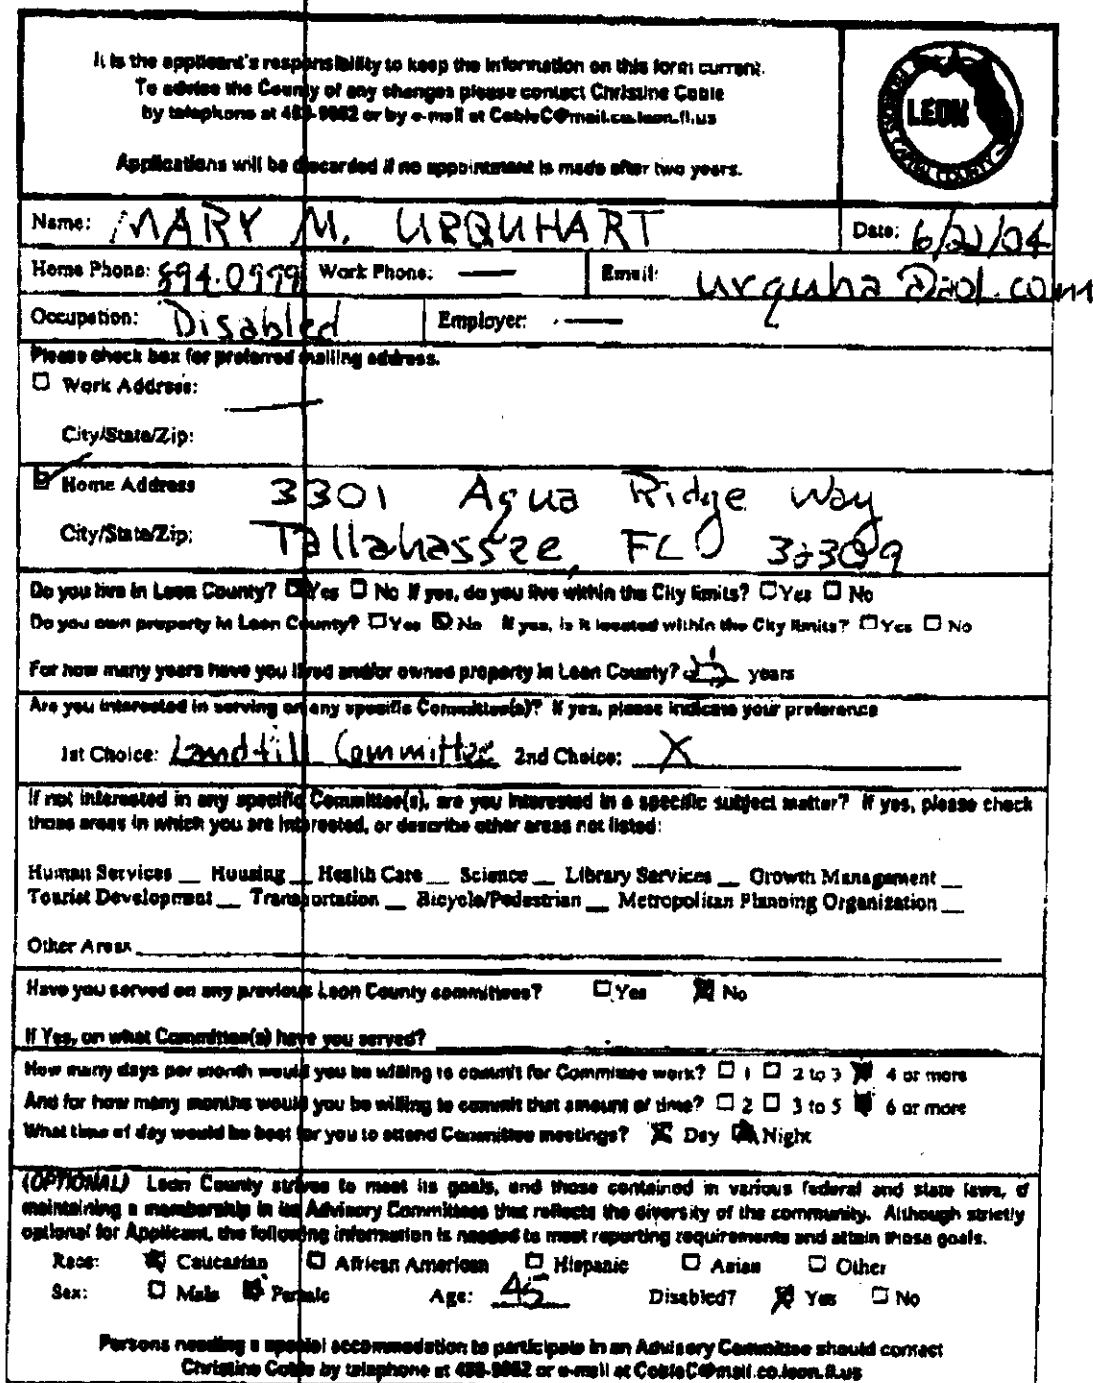 It is the applicant's responsibility to keep the information on this form current.
To advise the County of any changes please contact Christine Coble
by telephone at 488-9962 or by e-mail at CobleC@mail.co.leon.fl.us
Applications will be discarded if no appointment is made after two years.
LEON
COUNTY
Name: MARY M. URQUHART Date: 6/21/04
Home Phone: 894.0999 Work Phone: — Email: urquha@aol.com
Occupation: Disabled Employer: —
Please check box for preferred mailing address.
☐ Work Address: —
City/State/Zip:
☑ Home Address 3301 Agua Ridge Way
City/State/Zip: Tallahassee, FL 32309
Do you live in Leon County? ☑ Yes ☐ No If yes, do you live within the City limits? ☐ Yes ☐ No
Do you own property in Leon County? ☐ Yes ☑ No If yes, is it located within the City limits? ☐ Yes ☐ No
For how many years have you lived and/or owned property in Leon County? years
Are you interested in serving on any specific Committee(s)? If yes, please indicate your preference
1st Choice: Landfill Committee 2nd Choice: X
If not interested in any specific Committee(s), are you interested in a specific subject matter? If yes, please check
those areas in which you are interested, or describe other areas not listed:
Human Services __ Housing __ Health Care __ Science __ Library Services __ Growth Management __
Tourist Development __ Transportation __ Bicycle/Pedestrian __ Metropolitan Planning Organization __
Other Areas
Have you served on any previous Leon County committees? ☐ Yes ☒ No
If Yes, on what Committee(s) have you served?
How many days per month would you be willing to commit for Committee work? ☐ 1 ☐ 2 to 3 ☒ 4 or more
And for how many months would you be willing to commit that amount of time? ☐ 2 ☐ 3 to 5 ☒ 6 or more
What time of day would be best for you to attend Committee meetings? ☒ Day ☒ Night
(OPTIONAL) Leon County strives to meet its goals, and those contained in various federal and state laws, of
maintaining a membership in its Advisory Committees that reflects the diversity of the community. Although strictly
optional for Applicant, the following information is needed to meet reporting requirements and attain those goals.
Race: ☒ Caucasian ☐ African American ☐ Hispanic ☐ Asian ☐ Other
Sex: ☐ Male ☒ Female Age: 45 Disabled? ☒ Yes ☐ No
Persons needing a special accommodation to participate in an Advisory Committee should contact
Christine Coble by telephone at 488-9962 or e-mail at CobleC@mail.co.leon.fl.us